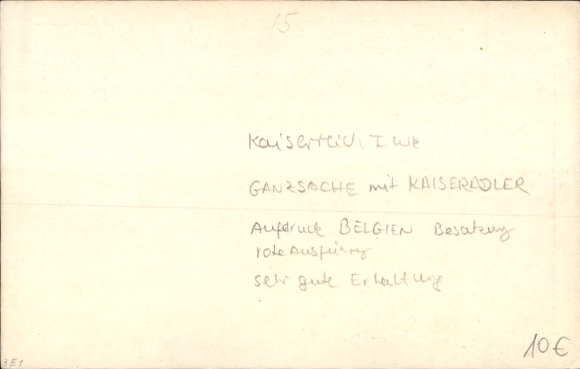 15
Kaiserreich I WK
GANZSACHE mit KAISERADLER
Aufdruck BELGIEN Besatzung
rote Ausführung
sehr gute Erhaltung
10€
3E1